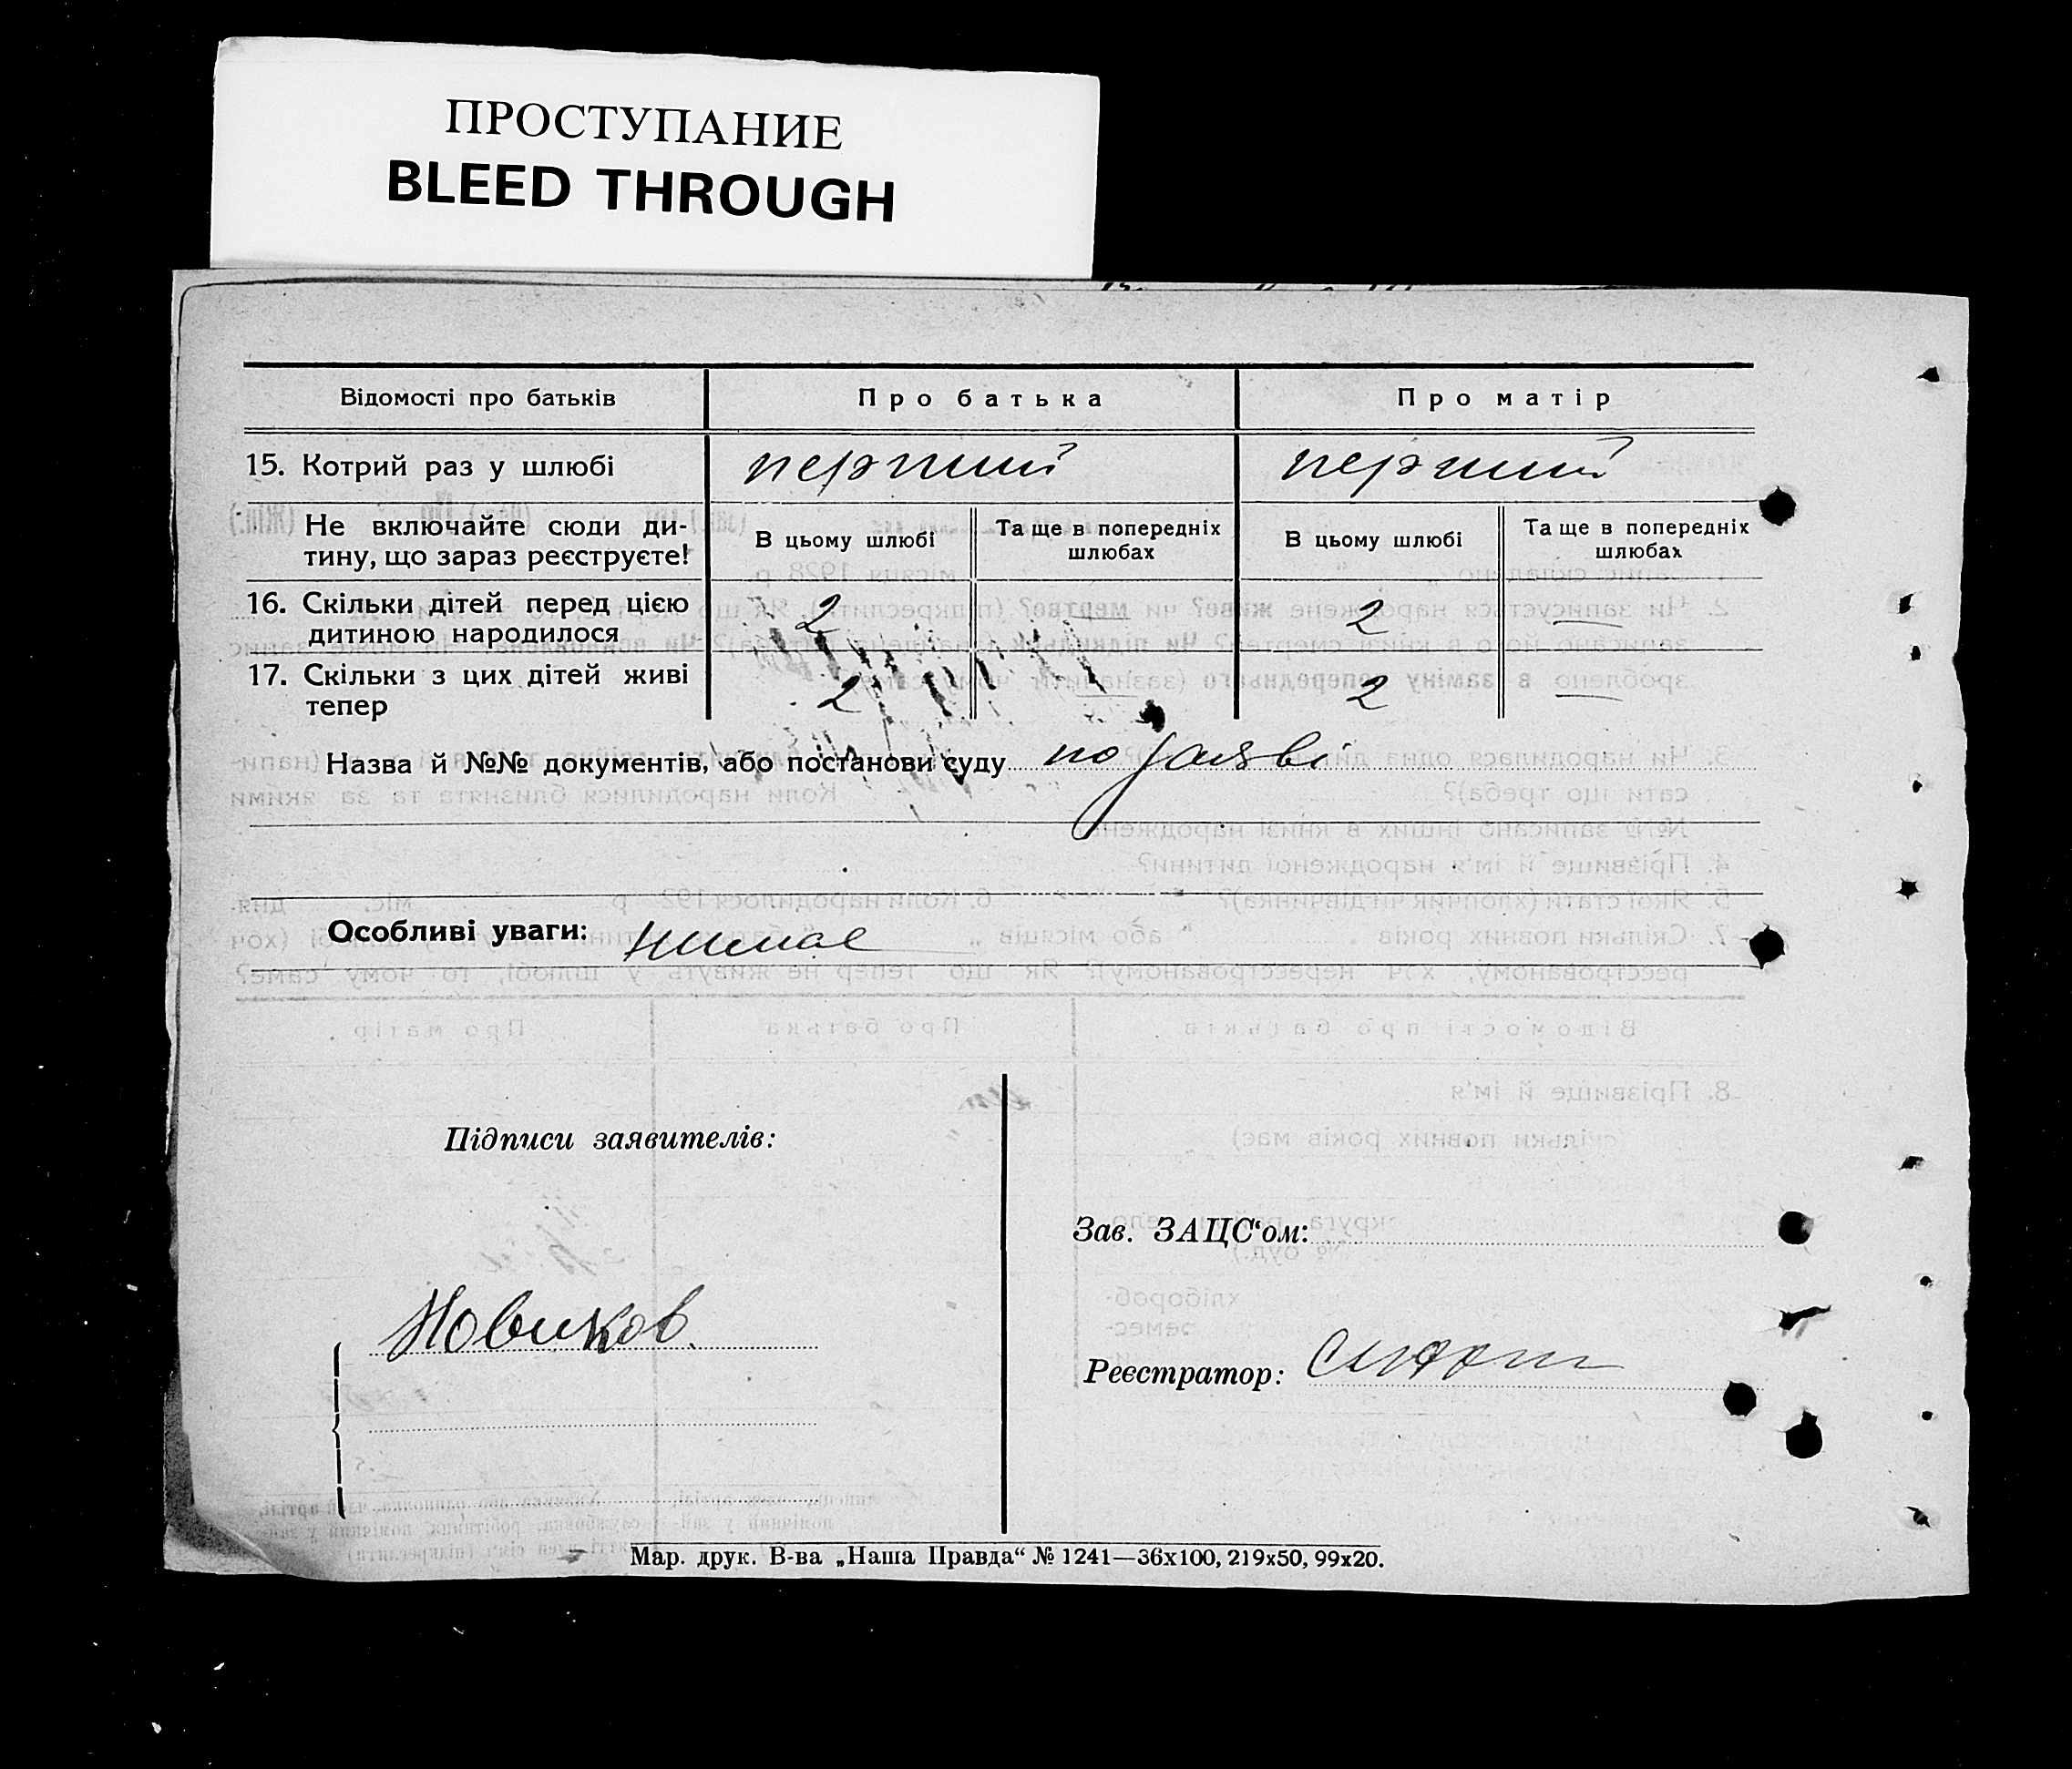 ПРОСТУПАНИЕ
BLEED THROUGH
Відомості про батьків Про батька Про матір
15. Котрий раз у шлюбі перший перший
Не включайте сюди ди-
тину, що зараз реєструєте!
В цьому шлюбі
Та ще в попередніх
шлюбах
В цьому шлюбі
Та ще в попередніх
шлюбах
16. Скільки дітей перед цією
дитиною народилося
2 — 2 —
17. Скільки з цих дітей живі
тепер
2 — 2 —
Назва й №№ документів, або постанови суду по заяві
Особливі уваги: нимає
Підписи заявителів:
Зав. ЗАЦС‘ом:
Новиков
Реєстратор:
Мар. друк. В-ва „Наша Правда“ № 1241—36х100, 219х50, 99х20.